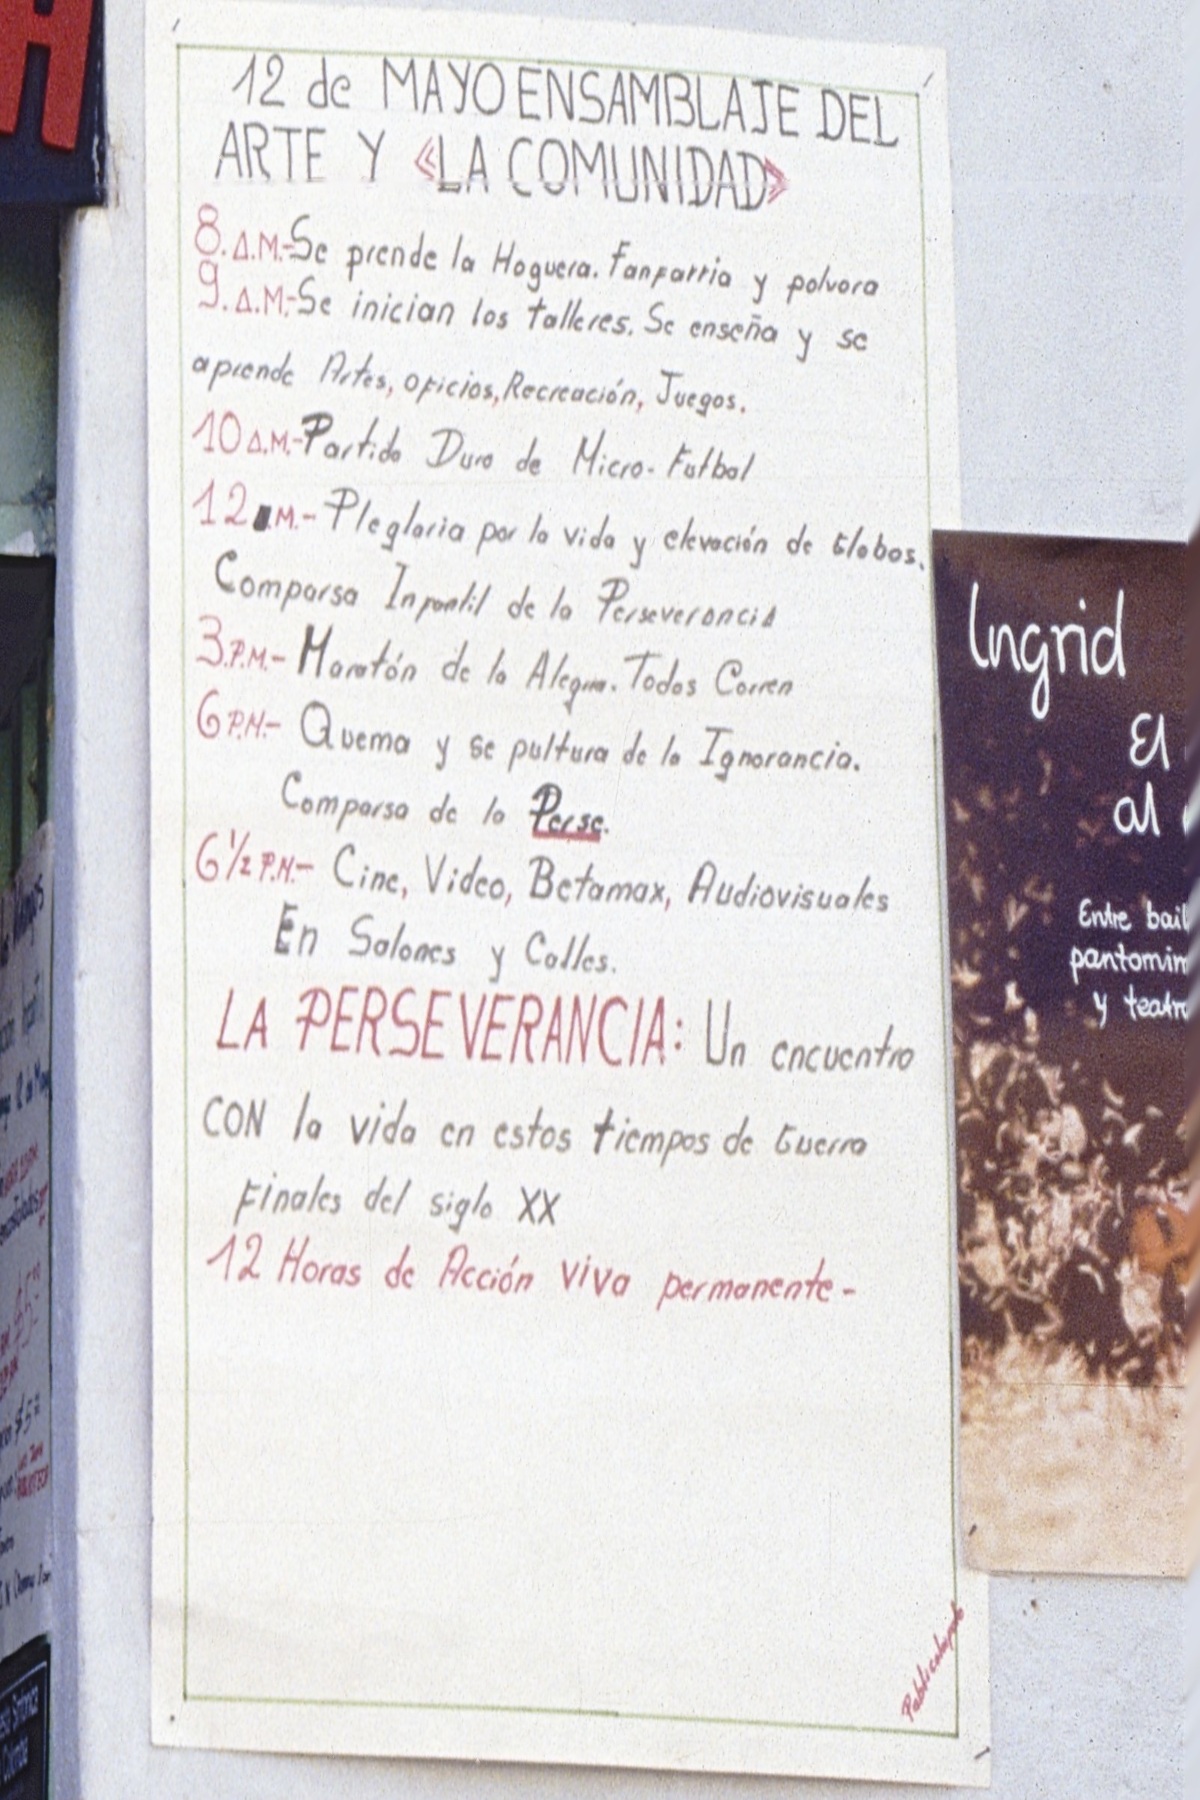 12 de MAYO ENSAMBLAJE DEL
ARTE Y «LA COMUNIDAD»
8. A.M.- Se prende la Hoguera. Fanfarria y polvora
9. A.M.- Se inician los talleres. Se enseña y se
aprende Artes, oficios, Recreación, Juegos.
10 A.M.- Partido Duro de Micro-Futbol
12 .M.- Plegloria por la vida y elevación de Globos.
Comparsa Infantil de la Perseverancia
3 P.M.- Maratón de la Alegria. Todos Corren
6 P.M.- Quema y se pultura de la Ignorancia.
Comparsa de la Perse.
6 1/2 P.M.- Cine, Video, Betamax, Audiovisuales
En Salones y Calles.
LA PERSEVERANCIA: Un encuentro
CON la vida en estos tiempos de Guerra
Finales del siglo XX
12 Horas de Acción viva permanente-
Ingrid
El
al
Entre bail
pantomim
y teatro